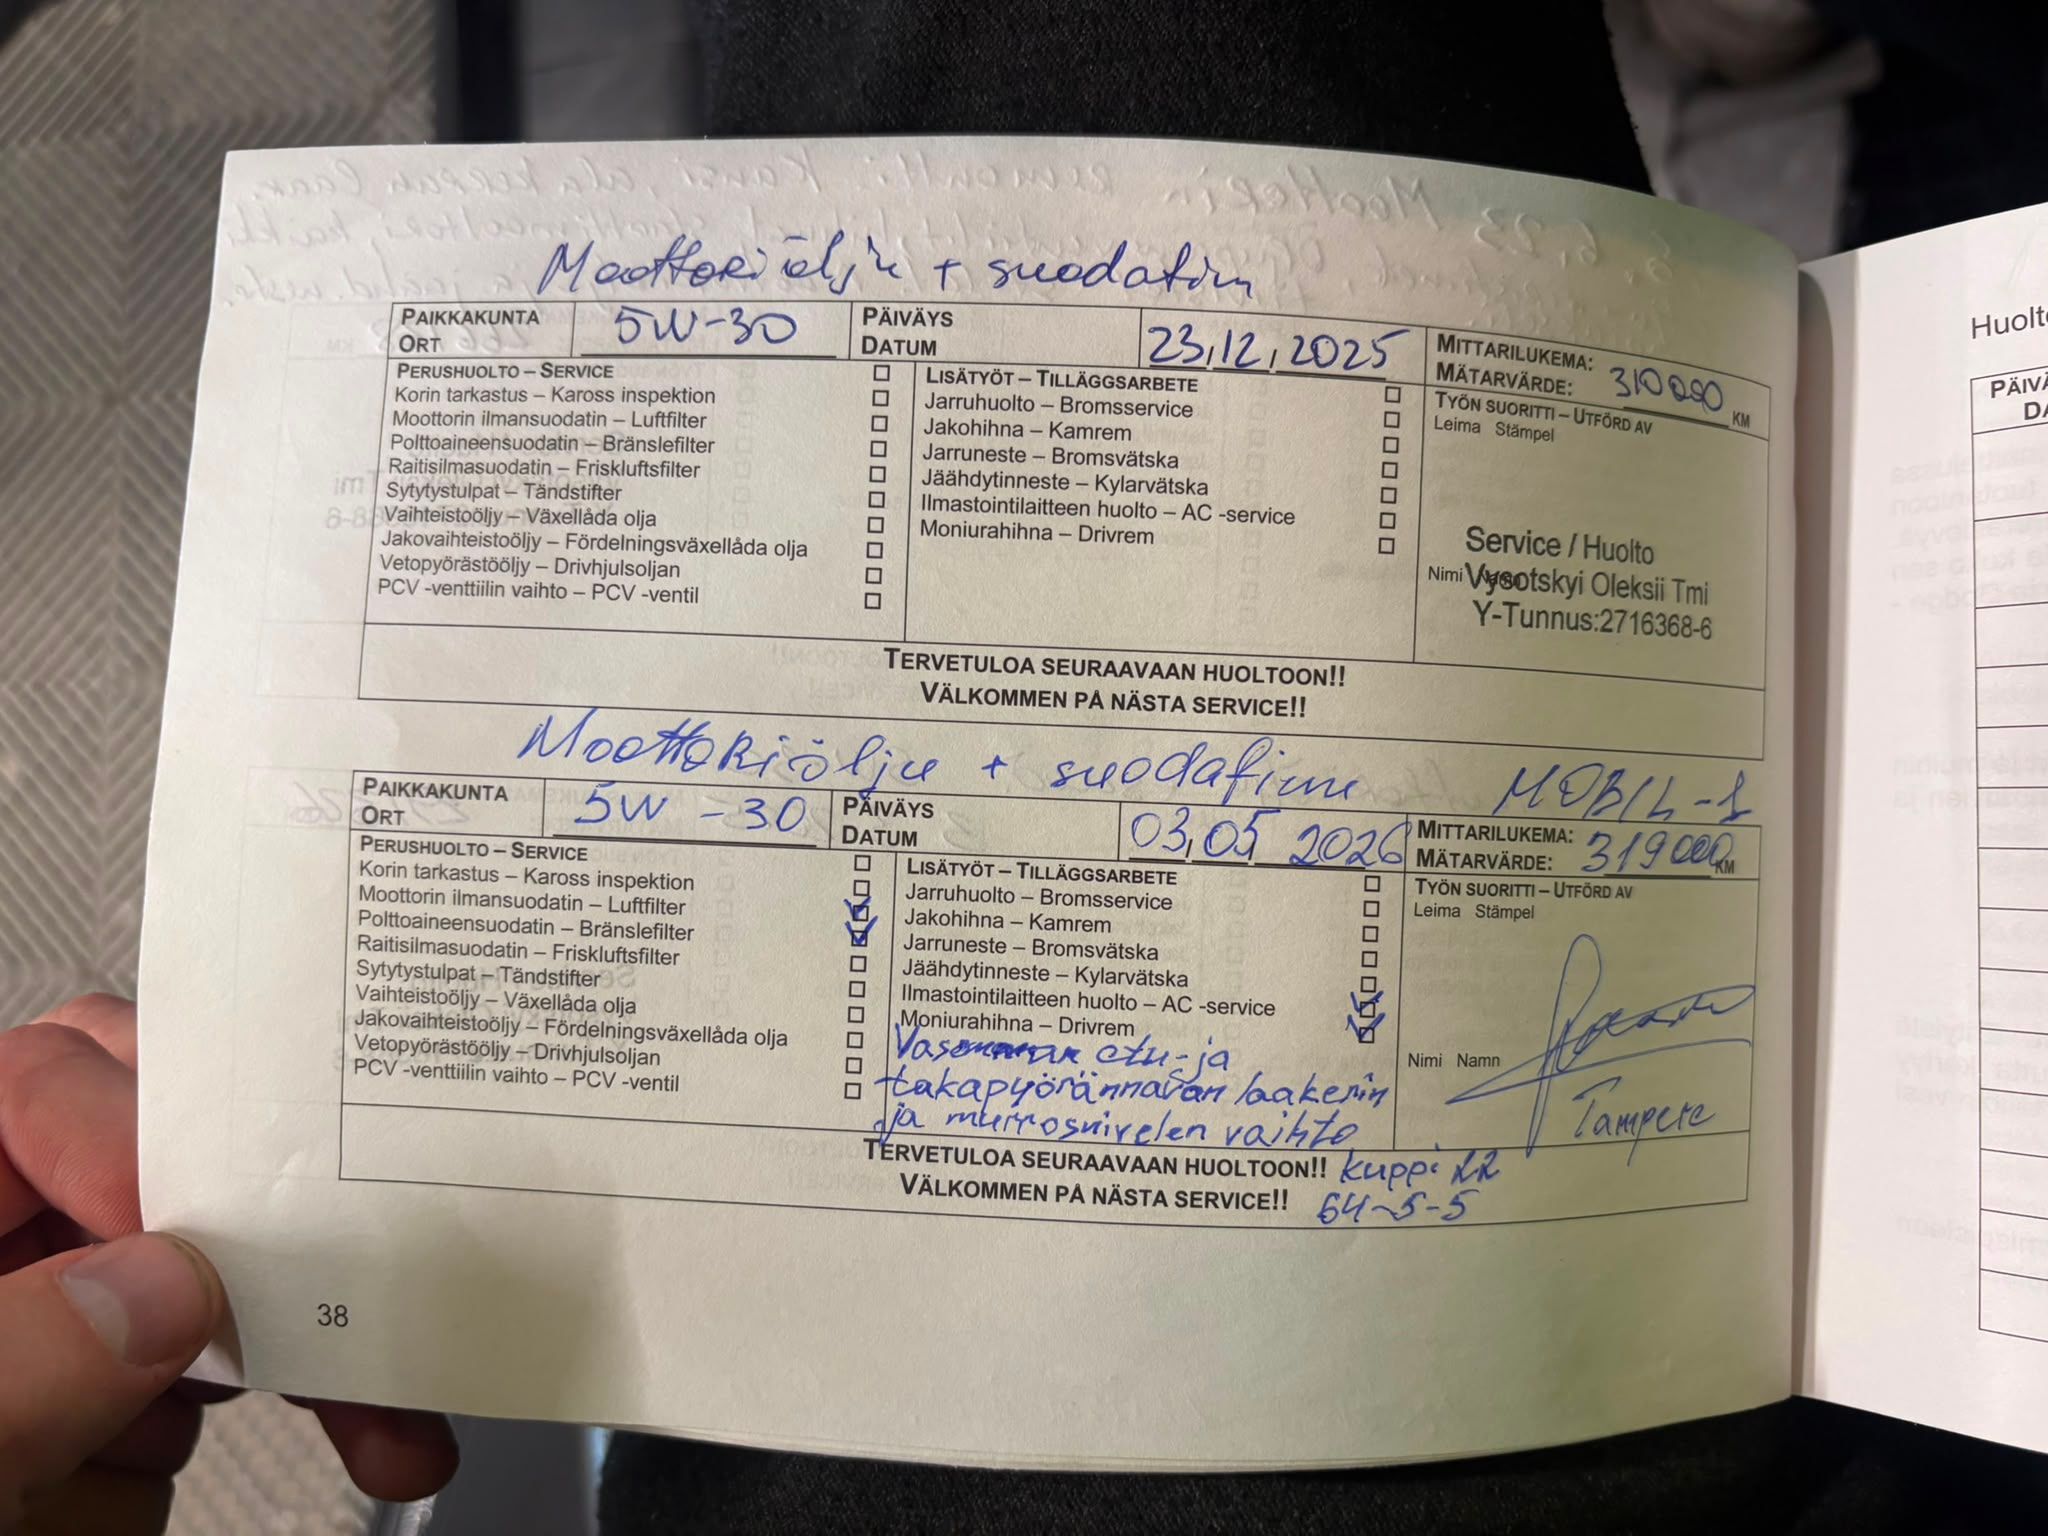 Moottoriöljy + suodatin
PAIKKAKUNTA
ORT
5W-30
PÄIVÄYS
DATUM
23,12,2025
MITTARILUKEMA:
MÄTARVÄRDE:
310000 KM
PERUSHUOLTO – SERVICE
Korin tarkastus – Kaross inspektion
Moottorin ilmansuodatin – Luftfilter
Polttoaineensuodatin – Bränslefilter
Raitisilmasuodatin – Friskluftsfilter
Sytytystulpat – Tändstifter
Vaihteistoöljy – Växellåda olja
Jakovaihteistoöljy – Fördelningsväxellåda olja
Vetopyörästööljy – Drivhjulsoljan
PCV -venttiilin vaihto – PCV -ventil
LISÄTYÖT – TILLÄGGSARBETE
Jarruhuolto – Bromsservice
Jakohihna – Kamrem
Jarruneste – Bromsvätska
Jäähdytinneste – Kylarvätska
Ilmastointilaitteen huolto – AC -service
Moniurahihna – Drivrem
TYÖN SUORITTI – UTFÖRD AV
Leima Stämpel
Service / Huolto
Nimi Namn
Vysotskyi Oleksii Tmi
Y-Tunnus:2716368-6
TERVETULOA SEURAAVAAN HUOLTOON!!
VÄLKOMMEN PÅ NÄSTA SERVICE!!
Moottoriöljy + suodatin MOBIL-1
PAIKKAKUNTA
ORT
5W-30
PÄIVÄYS
DATUM
03,05 2026
MITTARILUKEMA:
MÄTARVÄRDE:
319000 KM
PERUSHUOLTO – SERVICE
Korin tarkastus – Kaross inspektion
Moottorin ilmansuodatin – Luftfilter
Polttoaineensuodatin – Bränslefilter
Raitisilmasuodatin – Friskluftsfilter
Sytytystulpat – Tändstifter
Vaihteistoöljy – Växellåda olja
Jakovaihteistoöljy – Fördelningsväxellåda olja
Vetopyörästööljy – Drivhjulsoljan
PCV -venttiilin vaihto – PCV -ventil
LISÄTYÖT – TILLÄGGSARBETE
Jarruhuolto – Bromsservice
Jakohihna – Kamrem
Jarruneste – Bromsvätska
Jäähdytinneste – Kylarvätska
Ilmastointilaitteen huolto – AC -service
Moniurahihna – Drivrem
etu- ja
takapyörännavan laakerin
ja murrosnivelen vaihto
TYÖN SUORITTI – UTFÖRD AV
Leima Stämpel
Nimi Namn
Tampere
TERVETULOA SEURAAVAAN HUOLTOON!! kuppi 22
VÄLKOMMEN PÅ NÄSTA SERVICE!! 64-5-5
38